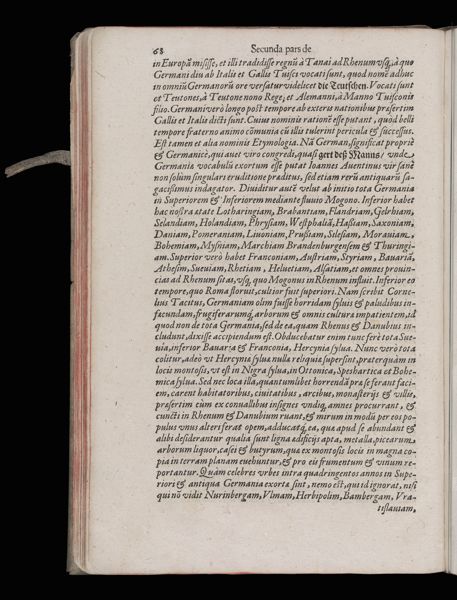 68 Secunda pars de
in Europā misisse, et illi tradidisse regnū à Tanai ad Rhenum vsq;, à quo
Germani diu ab Italis et Gallis Tuisci vocati sunt, quod nomē adhuc
in omniū Germanorū ore versatur videlicet die Teutschen. Vocati sunt
et Teutones, à Teutone nono Rege; et Alemanni, à Manno Tuisconis
filio. Germani verò longo pòst tempore ab exteris nationibus præsertim
Gallis et Italis dicti sunt. Cuius nominis rationē esse putant, quod belli
tempore fraterno animo cōmunia cū illis tulerint pericula & successus.
Est tamen et alia nominis Etymologia. Nā German, significat propriè
& Germanicè, qui auet viro congredi, quasi gert deß Manns / vnde
Germania vocabulū exortum esse putat Ioannes Auentinus vir sanè
non solùm singularis eruditione præditus, sed etiam rerū antiquarū sa-
gacissimus indagator. Diuiditur autē velut ab initio tota Germania
in Superiorem & Inferiorem mediante fluuio Mogono. Inferior habet
hac nostra ætate Lotharingiam, Brabantiam, Flandriam, Gelrhiam,
Selandiam, Holandiam, Phrysiam, Westphaliā, Hassiam, Saxoniam,
Daniam, Pomeraniam, Liuoniam, Prussiam, Silesiam, Morauiam,
Bohemiam, Mysniam, Marchiam Brandenburgensem & Thuringi-
am. Superior verò habet Franconiam, Austriam, Styriam, Bauariā,
Athesim, Sueuiam, Rhetiam, Heluetiam, Alsatiam, et omnes prouin-
cias ad Rhenum sitas, vsq; quo Mogonus in Rhenum influit. Inferior eo
tempore, quo Roma floruit, cultior fuit superiori. Nam scribit Corne-
lius Tacitus, Germaniam olim fuisse horridam syluis & paludibus in-
fæcundam, frugiferarumq; arborum & omnis cultura impatientem, id
quod non de tota Germania, sed de ea, quam Rhenus & Danubius in-
cludunt, dixisse accipiendum est. Obducebatur enim tunc ferè tota Sue-
uia, inferior Bauaria & Franconia, Hercynia sylua. Nunc verò tota
colitur, adeò vt Hercyniæ syluæ nulla reliquia supersint, præterquàm in
locis montosis, vt est in Nigra sylua, in Ottonica, Speshartica et Bohe-
mica sylua. Sed nec loca illa, quantumlibet horrendā præ se ferant faci-
em, carent habitatoribus, ciuitatibus, arcibus, monasterijs & villis,
præsertim cùm ex conuallibus insignes vndiq; amnes procurrant, &
cuncti in Rhenum & Danubium ruant, & mirum in modū per eos po-
pulus vnus alteri ferat opem, adducatq; ea, quæ apud se abundant &
alibi desiderantur qualia sunt ligna ædificijs apta, metalla, picearum
arborum liquor, casei & butyrum, quæ ex montosis locis in magna co-
pia in terram planam euehuntur, & pro eis frumentum & vinum re-
portantur. Quàm celebres vrbes intra quadringentos annos in Supe-
riori & antiqua Germania exortæ sint, nemo est, qui id ignorat, nisi
qui nō vidit Nurinbergam, Vlmam, Herbipolim, Bambergam, Vra-
tislauiam,